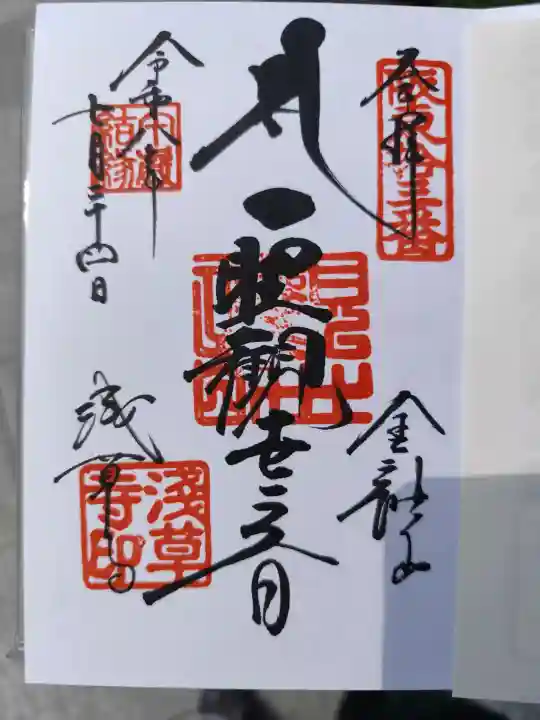 奉拝
坂東拾三番
金龍山
聖観世音
令和八年
七月二十四日
浅草寺
淺草寺印